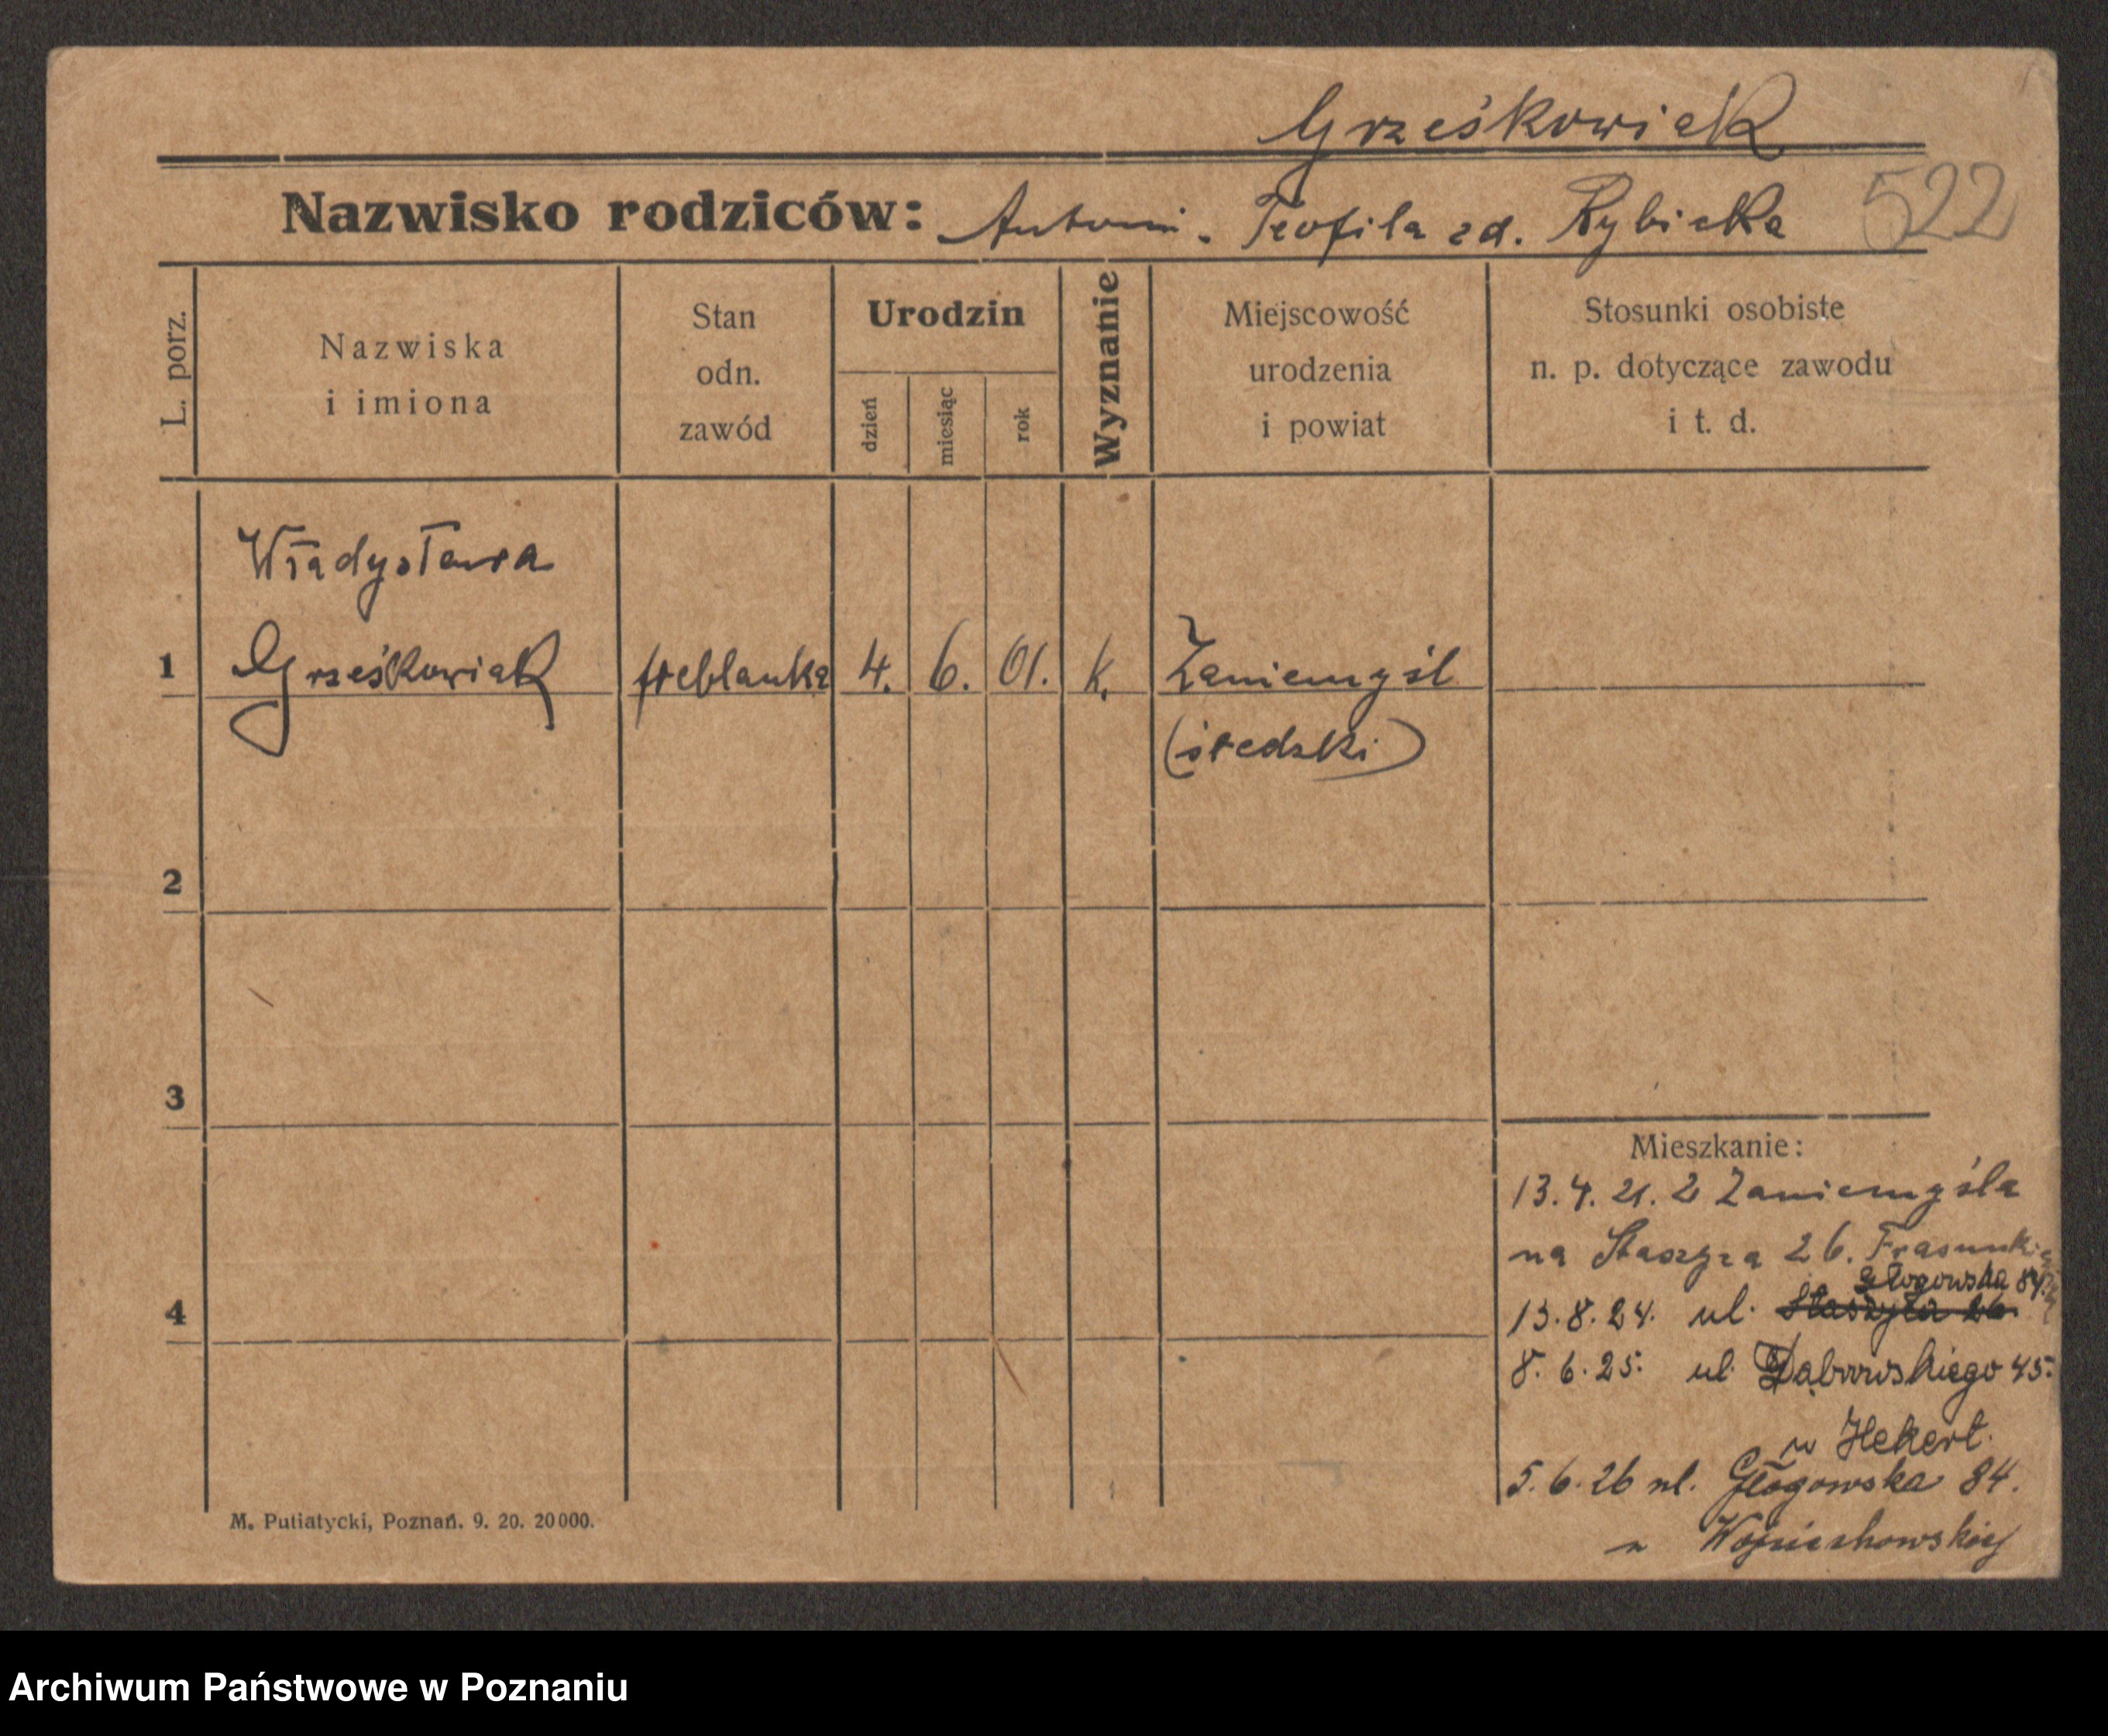 Grześkowiak
Nazwisko rodziców: Antoni. Teofila zd. Rybicka 522
L. porz.
Nazwiska
i imiona
Stan
odn.
zawód
Urodzin
dzień
miesiąc
rok
Wyznanie
Miejscowość
urodzenia
i powiat
Stosunki osobiste
n. p. dotyczące zawodu
i t. d.
Władysława
1 Grześkowiak freblanka 4. 6. 01. k. Zaniemyśl
(średzki)
2
3
4
Mieszkanie:
13.4.21. z Zaniemyśla
na Staszyca 26.
Głogowska 84.
13.8.24. ul. Staszyca 26.
8.6.25. ul. Dąbrowskiego 45.
u Hekert.
5.6.26 ul. Głogowska 84.
u Wojciechowskiej
M. Putiatycki, Poznań. 9. 20. 20000.
Archiwum Państwowe w Poznaniu